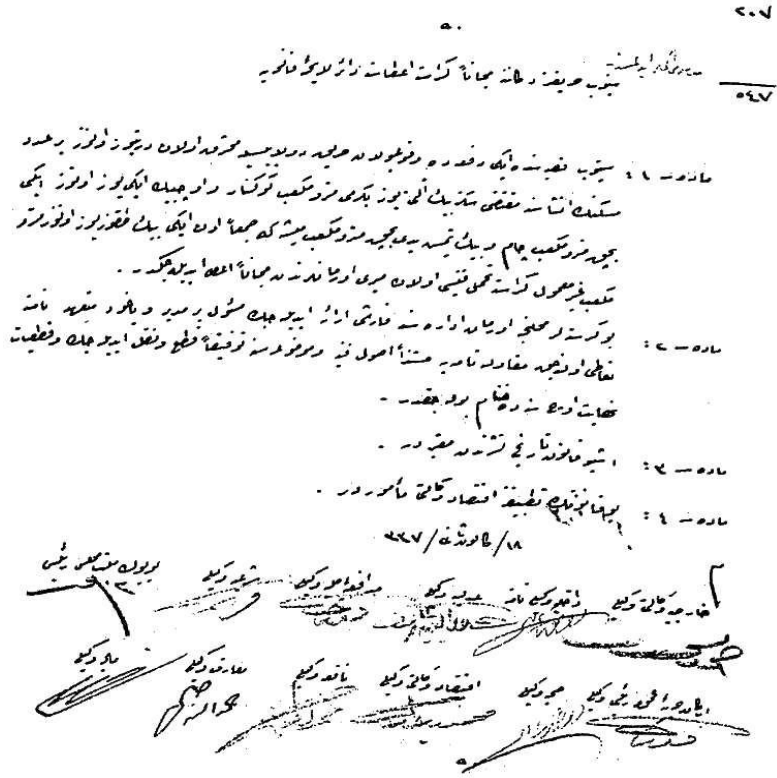 ٢٠٧
٥٠
سينوب حريقزدكانه مجاناً كراسته اعطاسنه دائر لايحۀ قانونيه
٥٤٧
ماده ١ : سينوب قصبه سنده ايكى دفعه ده وقوعبولان حريق دولاييسيله محترق اولان درتيوز اوتوز بر عدد
مسكنك انشاسنه مقتضى سكز بيك آلتى يوز يكرمى متره مكعب كوكنار و اوچ بيك ايكى يوز اوتوز ايكى
بچق متره مكعب چام و بيك يتمش يدى بچق متره مكعب ميشه كه جمعاً اون ايكى بيك طقوز يوز اوتوز متره
مكعب غير معمول كراسته ميرى اورمانلرندن مجاناً اعطا ايديله جكدر .
ماده ٢ : بو كراسته لر محلى اورمان اداره سنه قارشى ارائه ايديله جك مسئول بر مدير و ياخود متعهد نامنه
تعاطى اولنه جق مقاوله نامه يه مستنداً اصول فنيه و موضوعه سنه توفيقاً قطع و نقل ايديله جك و قطعيات
نهايت اوچ سنه ده ختام بوله جقدر .
ماده ٣ : اشبو قانون تاريخ نشرندن معتبردر .
ماده ٤ : بو قانونك تطبيقنه اقتصاد وكالتى مأموردر .
١٨/كانون ثانى/٣٣٧
بويوك ملت مجلسى رئيسى
شرعيه وكيلى
مدافعه مليه وكيلى
عدليه وكيلى
داخليه وكيلى نامنه
خارجيه وكالتى وكيلى
ماليه وكيلى
معارف وكيلى
نافعه وكيلى
اقتصاد وكالتى وكيلى
صحيه وكيلى
اركان حربيه عموميه رئيسى وكيلى